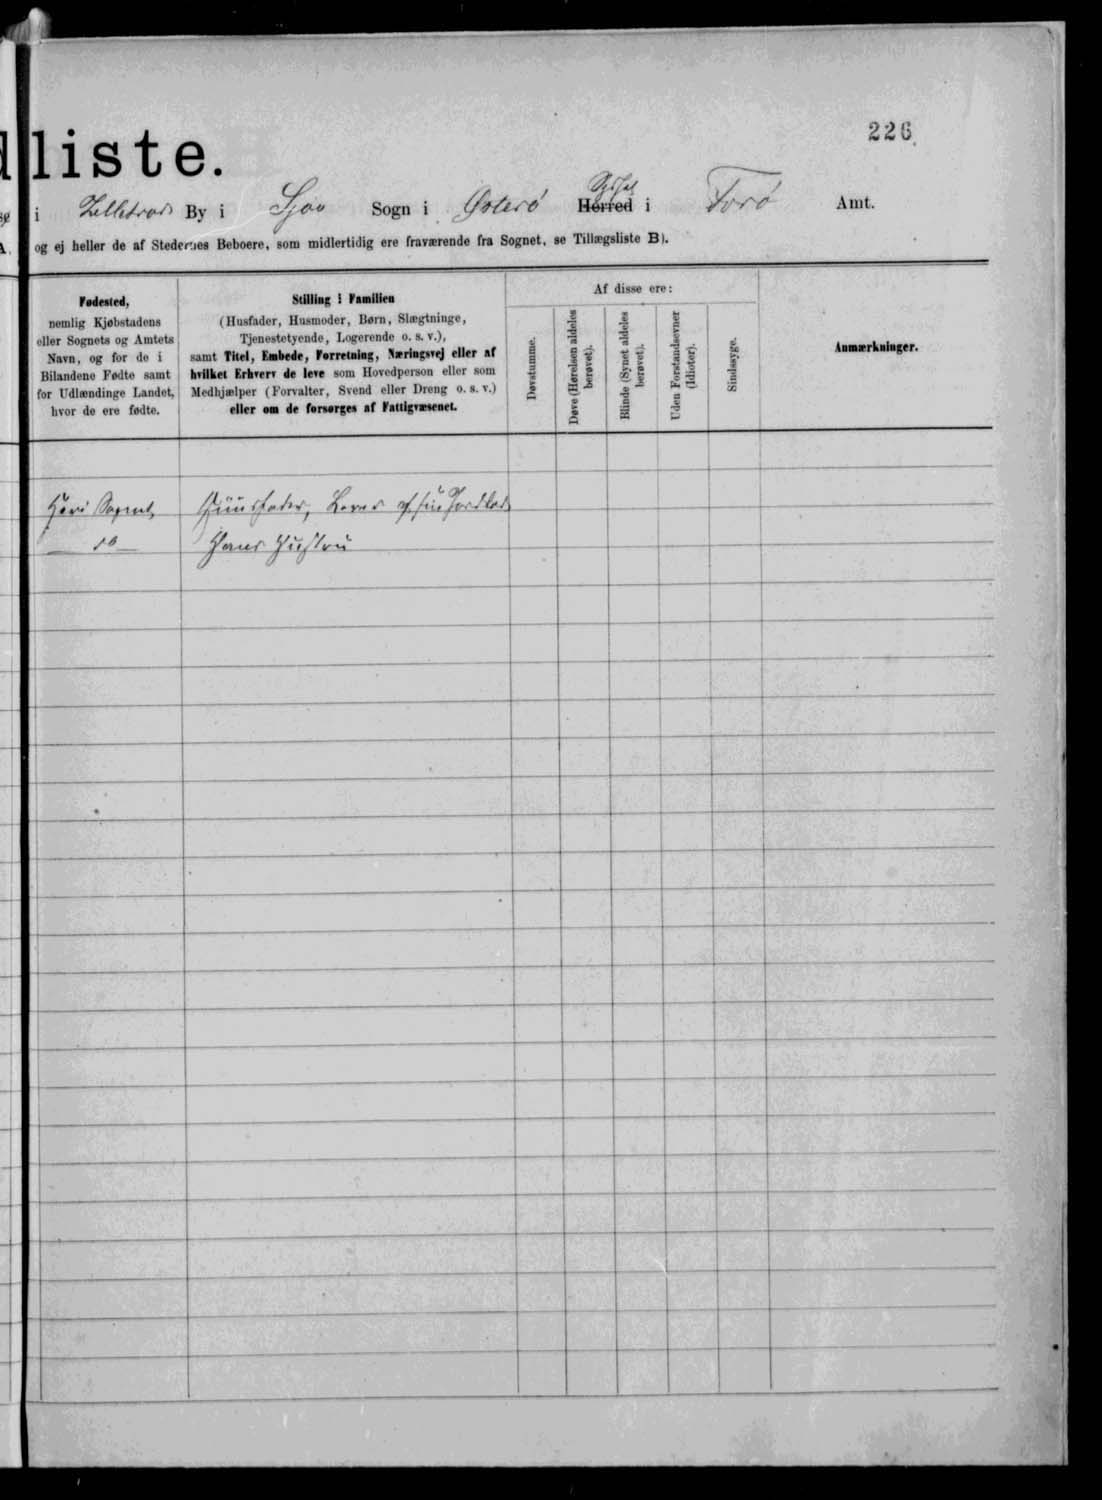 226.
liste.
i Zelletræd By i Sjov Sogn i Østerø Herred Syssel i Forø Amt.
og ej heller de af Stedernes Beboere, som midlertidig ere fraværende fra Sognet, se Tillægsliste B).
Fødested,
nemlig Kjøbstadens
eller Sognets og Amtets
Navn, og for de i
Bilandene Fødte samt
for Udlændinge Landet,
hvor de ere fødte.
Stilling i Familien
(Husfader, Husmoder, Børn, Slægtninge,
Tjenestetyende, Logerende o. s. v.),
samt Titel, Embede, Forretning, Næringsvej eller af
hvilket Erhverv de leve som Hovedperson eller som
Medhjælper (Forvalter, Svend eller Dreng o. s. v.)
eller om de forsørges af Fattigvæsenet.
Af disse ere:
Døvstumme.
Døve (Hørelsen aldeles
berøvet).
Blinde (Synet aldeles
berøvet).
Uden Forstandsevner
(Idioter).
Sindssyge.
Anmærkninger.
Her i Sognet, Huusfader, Lever af sin Jordlod
do Hans Hustru